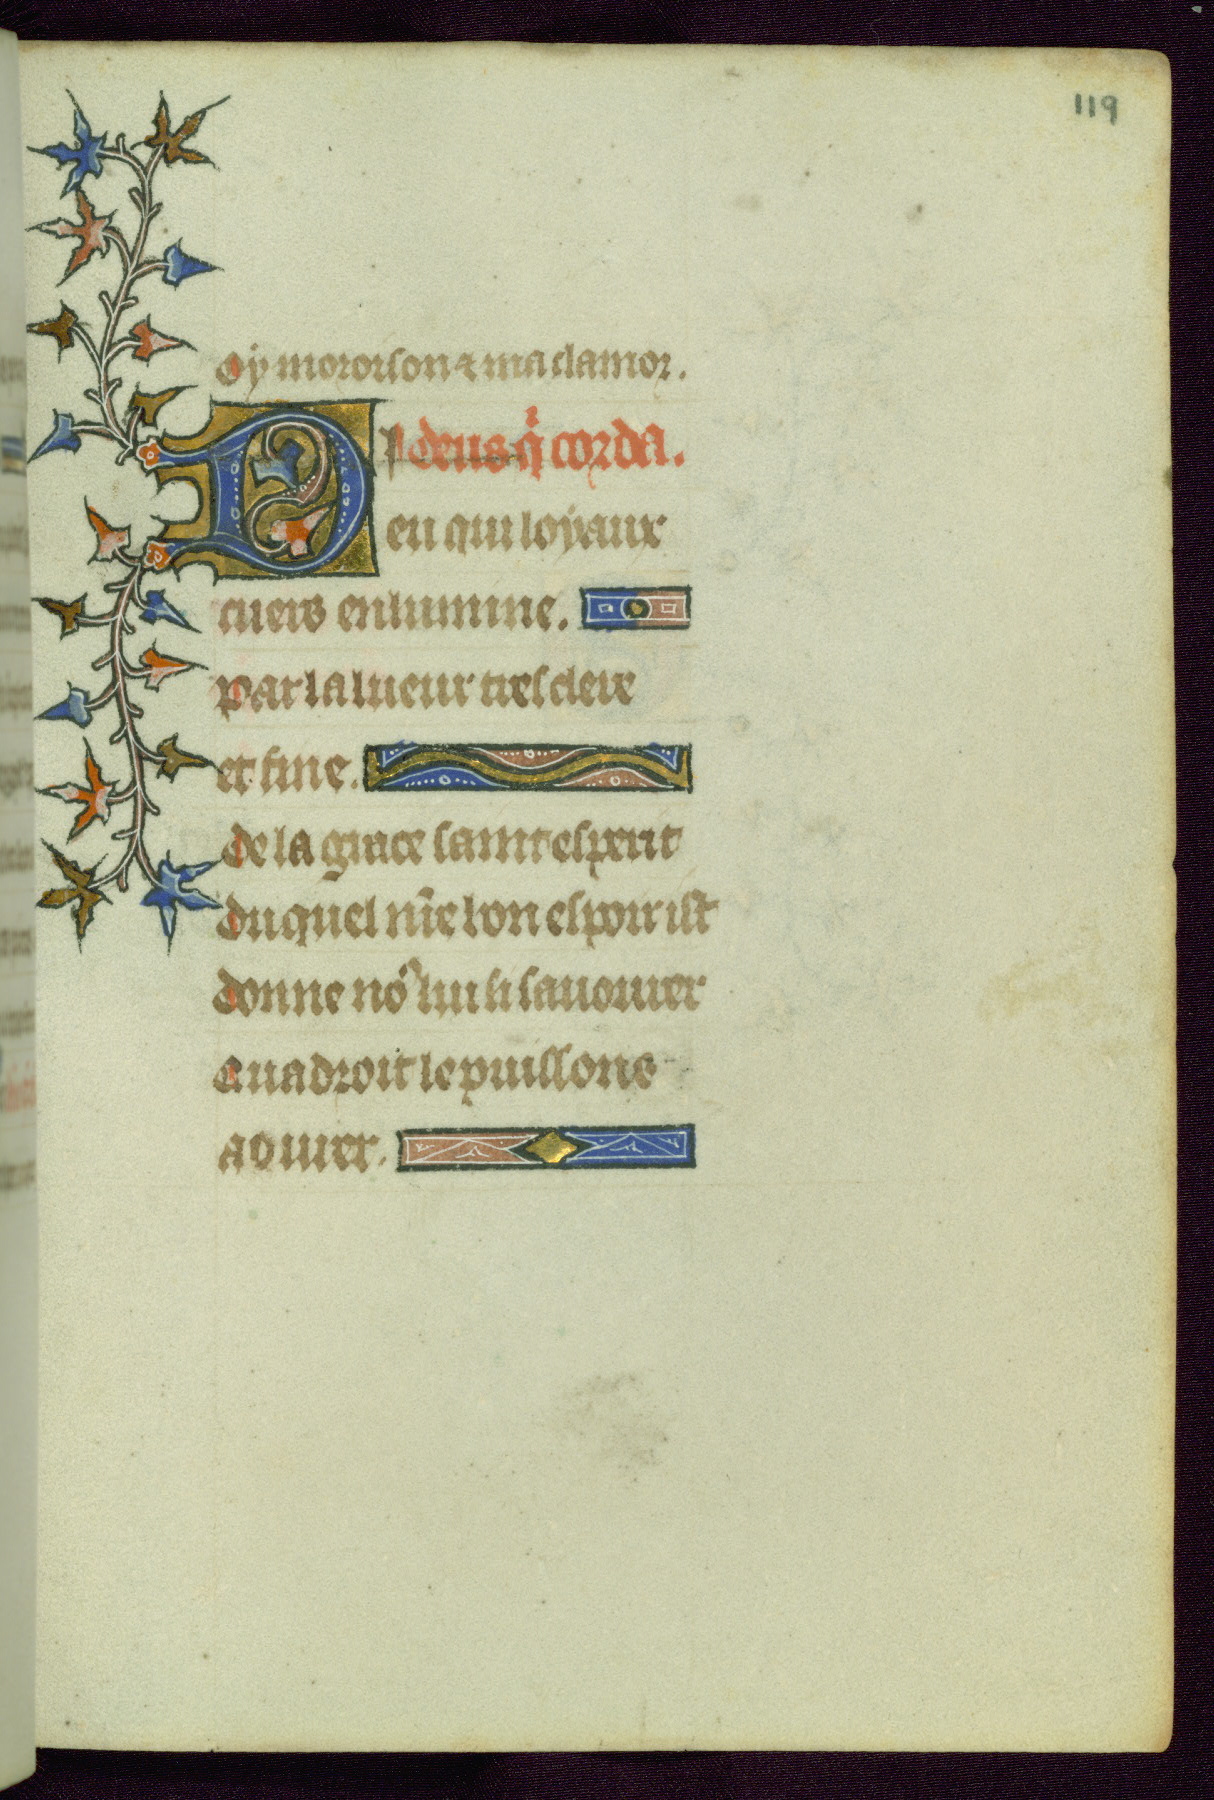 119
oy mor orson ⁊ ma clamor.
deus q̈ corda.
Deu qui loyaux
cuers enlumine.
par la lueur tres clere
et fine.
de la grace saint esperit
du quel nr̄e bon espoir ist
donne no᷒ lui si sauourer
Qua droit le puissons
aourer.